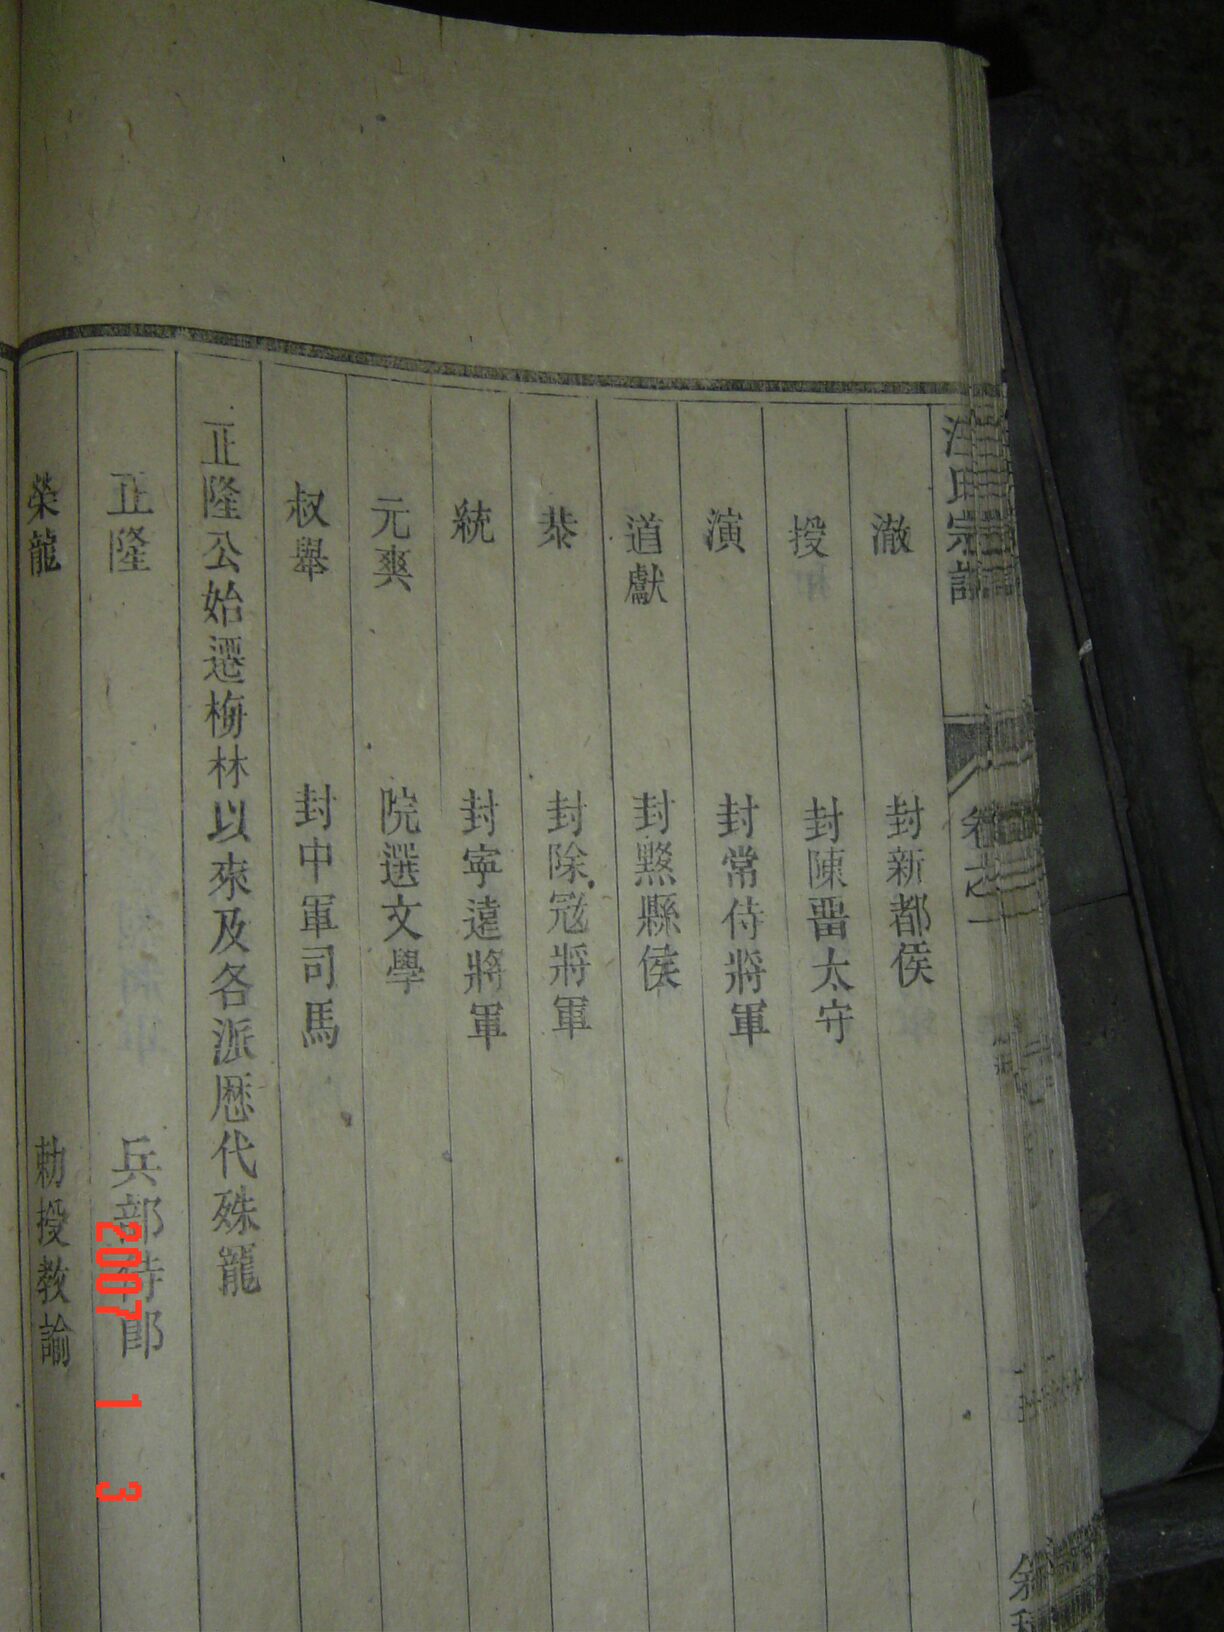 汪氏宗譜
卷之一
澈 封新都侯
授 封陳畱太守
演 封常侍將軍
道獻 封黟縣侯
恭 封除冦將軍
統 封寜遠將軍
元爽 院選文學
叔舉 封中軍司馬
正隆公始遷梅林以來及各派歴代殊寵
正隆 兵部侍郎
榮龍 勅授教諭
2007 1 3